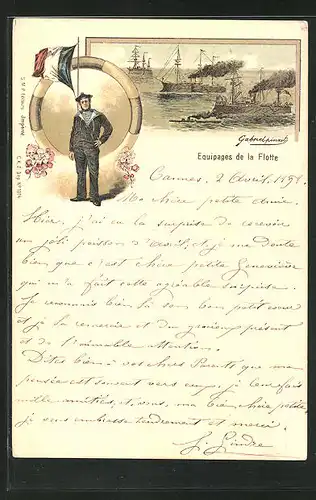 Gabriel
Equipages de la Flotte
Cannes, 2 Avril, 189
Ma chère petite amie.
Hier, j'ai eu la surprise de recevoir
un joli poisson d'avril, et je me doute
bien que c'est chère petite Geneviève
qui m'a fait cette agréable surprise.
Je reconnais bien là son bon petit coeur
et je la remercie et du gracieux présent
et de l'aimable attention.
Dites bien à vos chers Parents que ma
pensée est souvent vers eux, je leur fais
mille amitiés, et vous, ma bien chère petite,
je vous embrasse tendrement et merci.